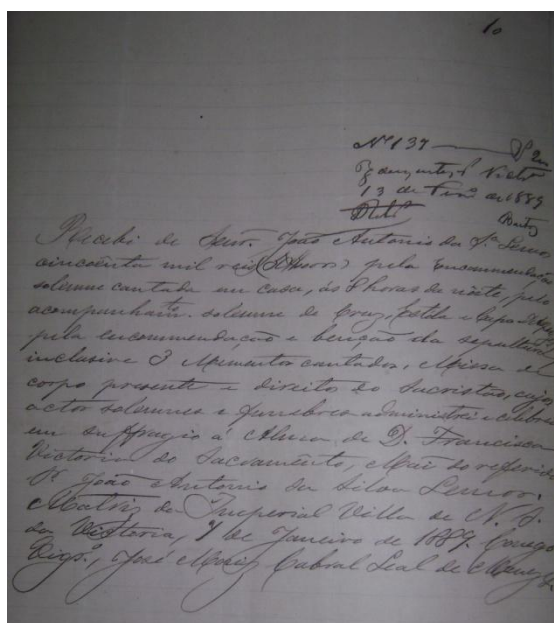 10
Nº 137
13 de de 1889
Recebi do Senr. João Antonio da Sª Lemos
cincoenta mil reis pela encommendação
solemne cantada em casa, ás 8 horas da noite, pelo
acompanhamto. solemne de Cruz, e Capa
pela encommendação e benção da sepultura
inclusive 3 Mementos cantados, Missa de
corpo presente e direito do Sacristão, cujos
actos solemnes e funebres administrei e celebrei
em suffragio á Alma de D. Francisca
Victoria do Sacramento, Mãi do referido
Sr João Antonio da Silva Lemos.
Matriz da Imperial Villa de N. S.
da Victoria, 9 de Janeiro de 1889. Conego
Vigº, José Maria Cabral Leal de